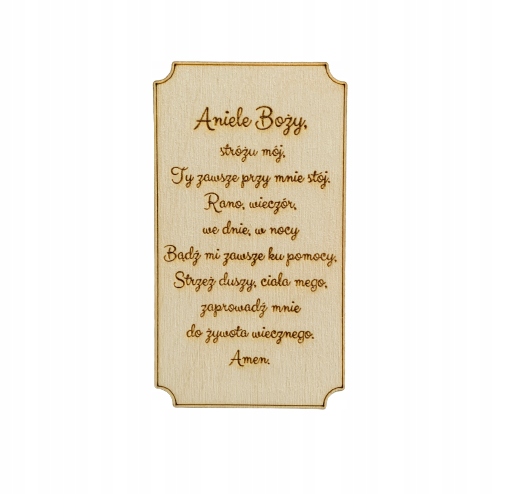 Aniele Boży,
stróżu mój,
Ty zawsze przy mnie stój.
Rano, wieczór,
we dnie, w nocy
Bądź mi zawsze ku pomocy,
Strzeż duszy, ciała mego,
zaprowadź mnie
do żywota wiecznego.
Amen.